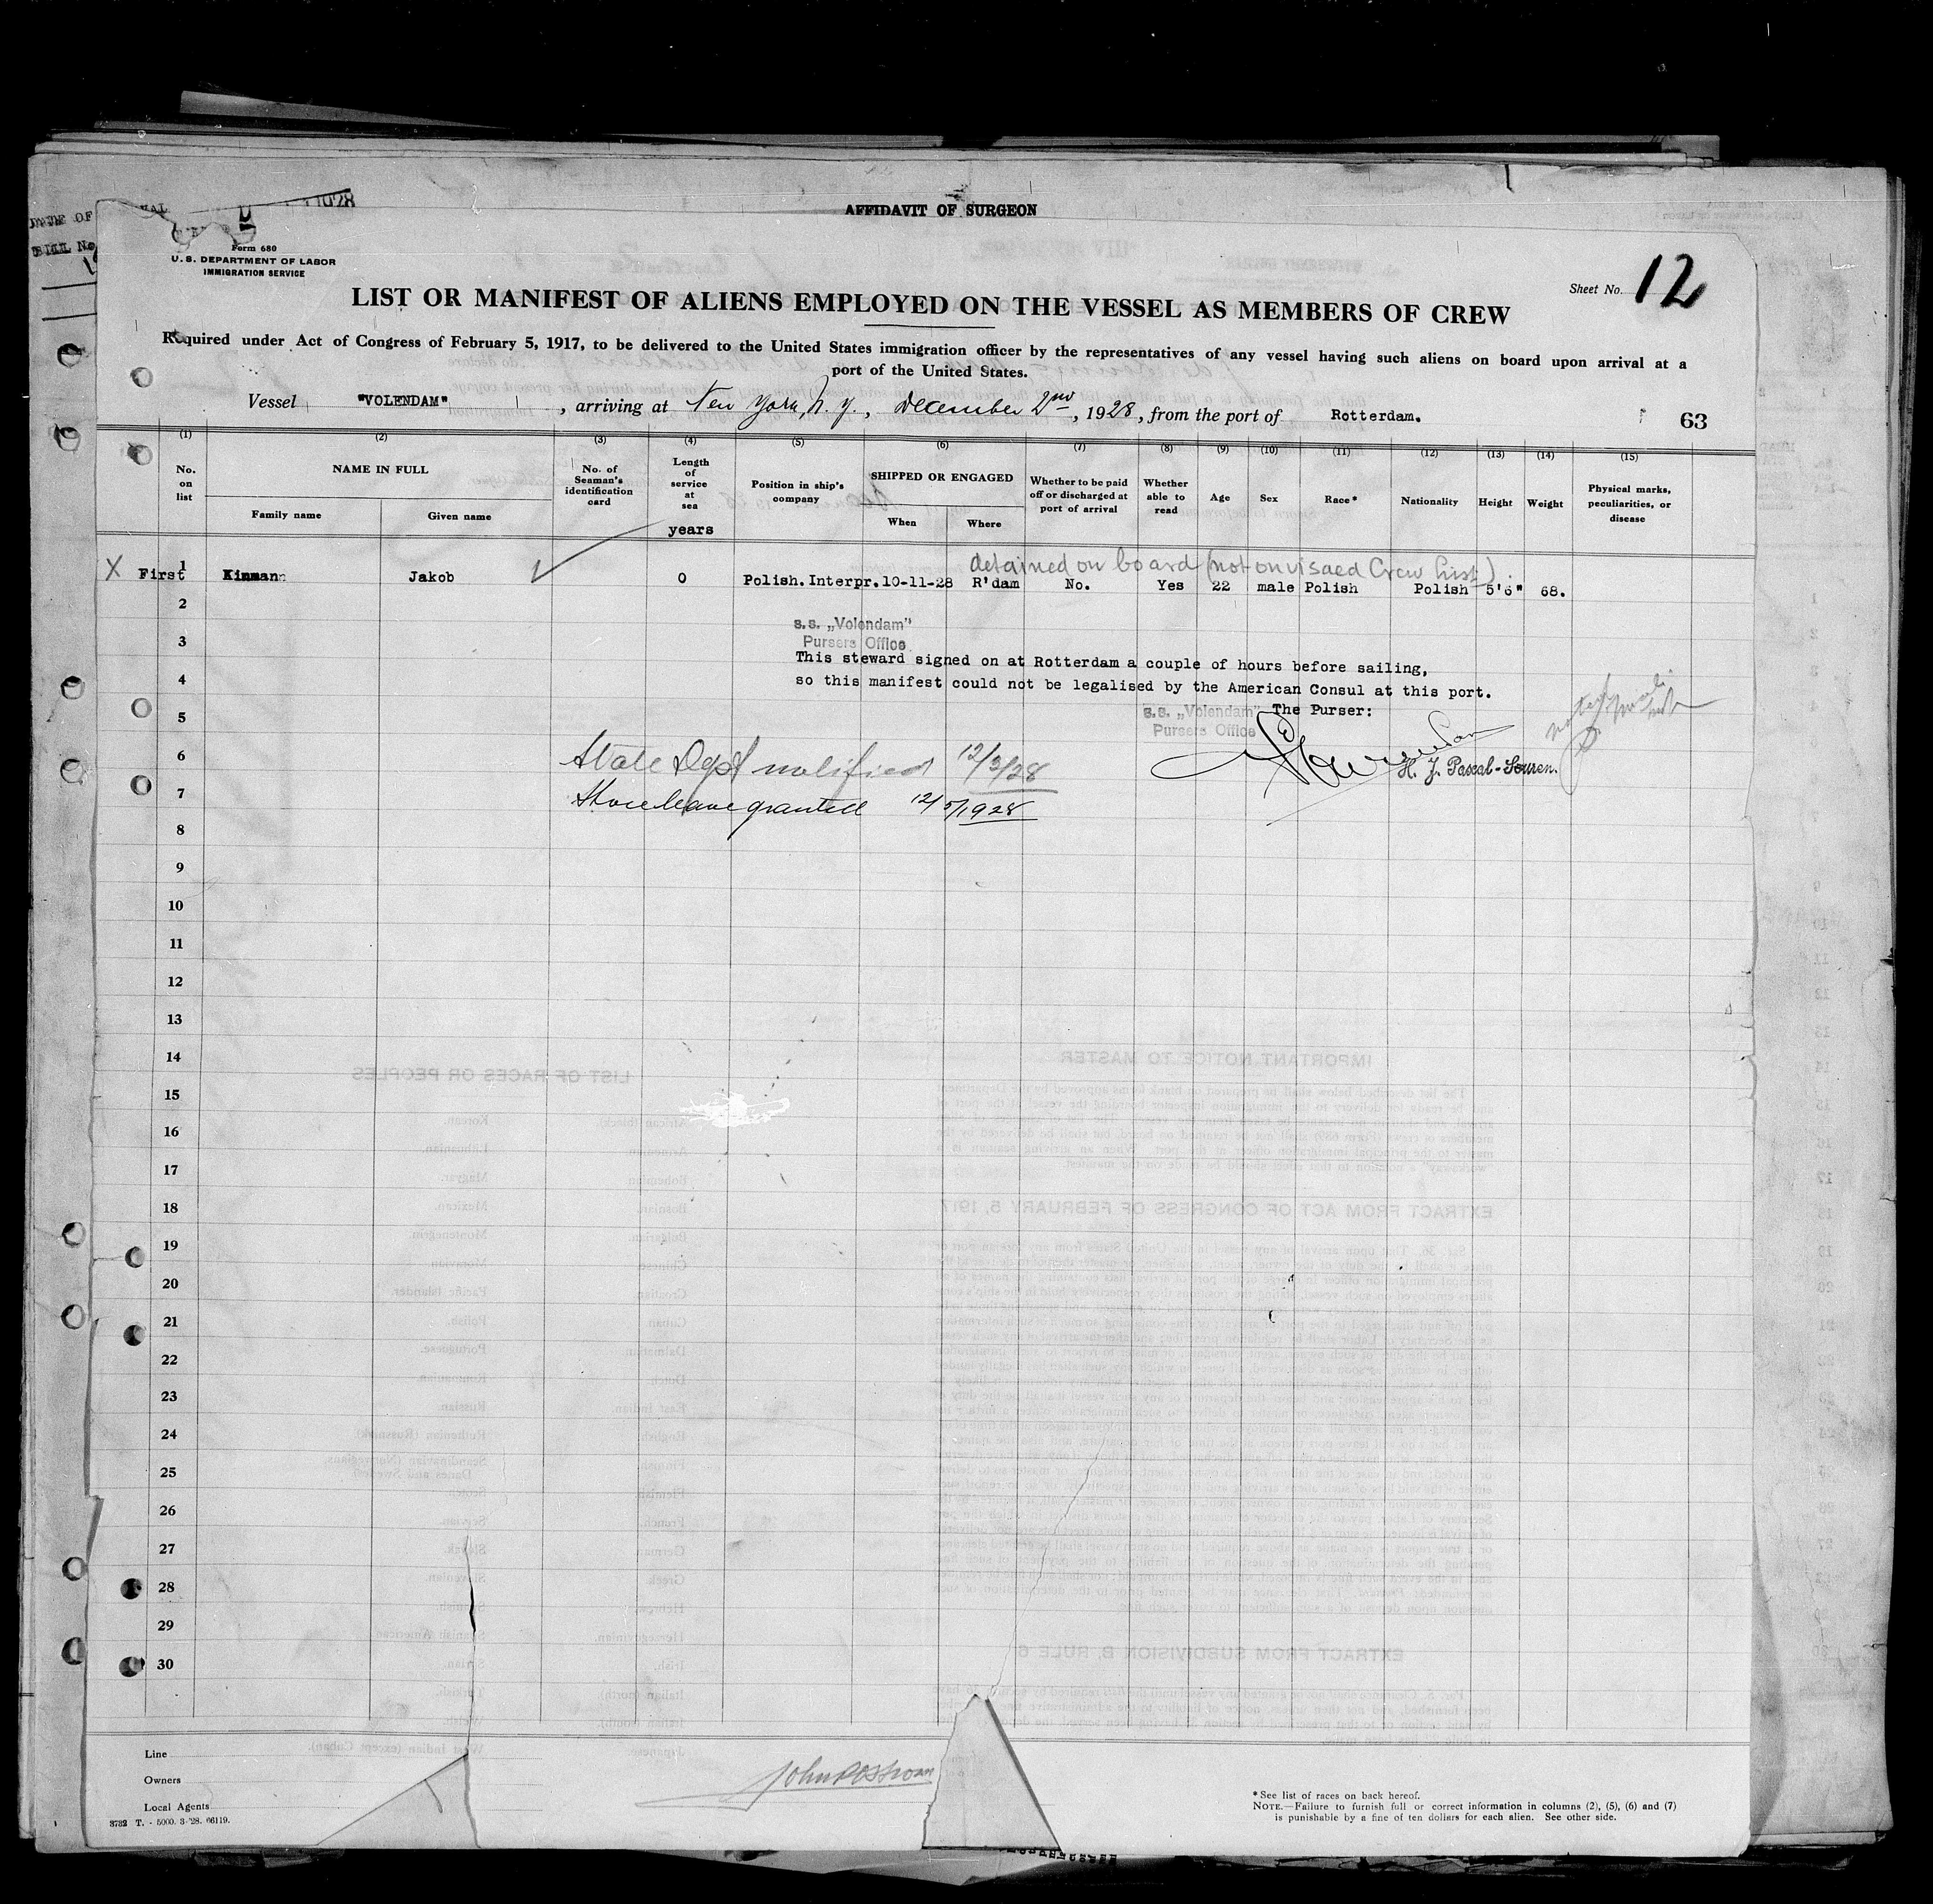 AFFIDAVIT OF SURGEON
Form 680
U. S. DEPARTMENT OF LABOR
IMMIGRATION SERVICE
Sheet No. 12
LIST OR MANIFEST OF ALIENS EMPLOYED ON THE VESSEL AS MEMBERS OF CREW
Required under Act of Congress of February 5, 1917, to be delivered to the United States immigration officer by the representatives of any vessel having such aliens on board upon arrival at a
port of the United States.
Vessel "VOLENDAM", arriving at New York, N. Y., December 2nd, 1928, from the port of Rotterdam.
63
(1) (2) (3) (4) (5) (6) (7) (8) (9) (10) (11) (12) (13) (14) (15)
No. on list
NAME IN FULL
Family name
Given name
No. of Seaman's identification card
Length of service at sea
years
Position in ship's company
SHIPPED OR ENGAGED
When
Where
Whether to be paid off or discharged at port of arrival
Whether able to read
Age
Sex
Race*
Nationality
Height
Weight
Physical marks, peculiarities, or disease
detained on board (not on visaed Crew List).
X First 1 Kinman Jakob 0 Polish.Interpr. 10-11-28 R'dam No. Yes 22 male Polish Polish 5'6" 68.
2
s.s. „Volendam"
3 Pursers Office
This steward signed on at Rotterdam a couple of hours before sailing,
4 so this manifest could not be legalised by the American Consul at this port.
5 s.s. „Volendam" The Purser:
Pursers Office
6 State Dept notified 12/3/28
H. J. Pascal-Souren.
7 Shore leave granted 12/5/1928
8
9
10
11
12
13
14
15
16
17
18
19
20
21
22
23
24
25
26
27
28
29
30
Line
Owners
Local Agents
3732 T. - 5000. 3-'28. 66119.
* See list of races on back hereof.
NOTE.—Failure to furnish full or correct information in columns (2), (5), (6) and (7)
is punishable by a fine of ten dollars for each alien. See other side.